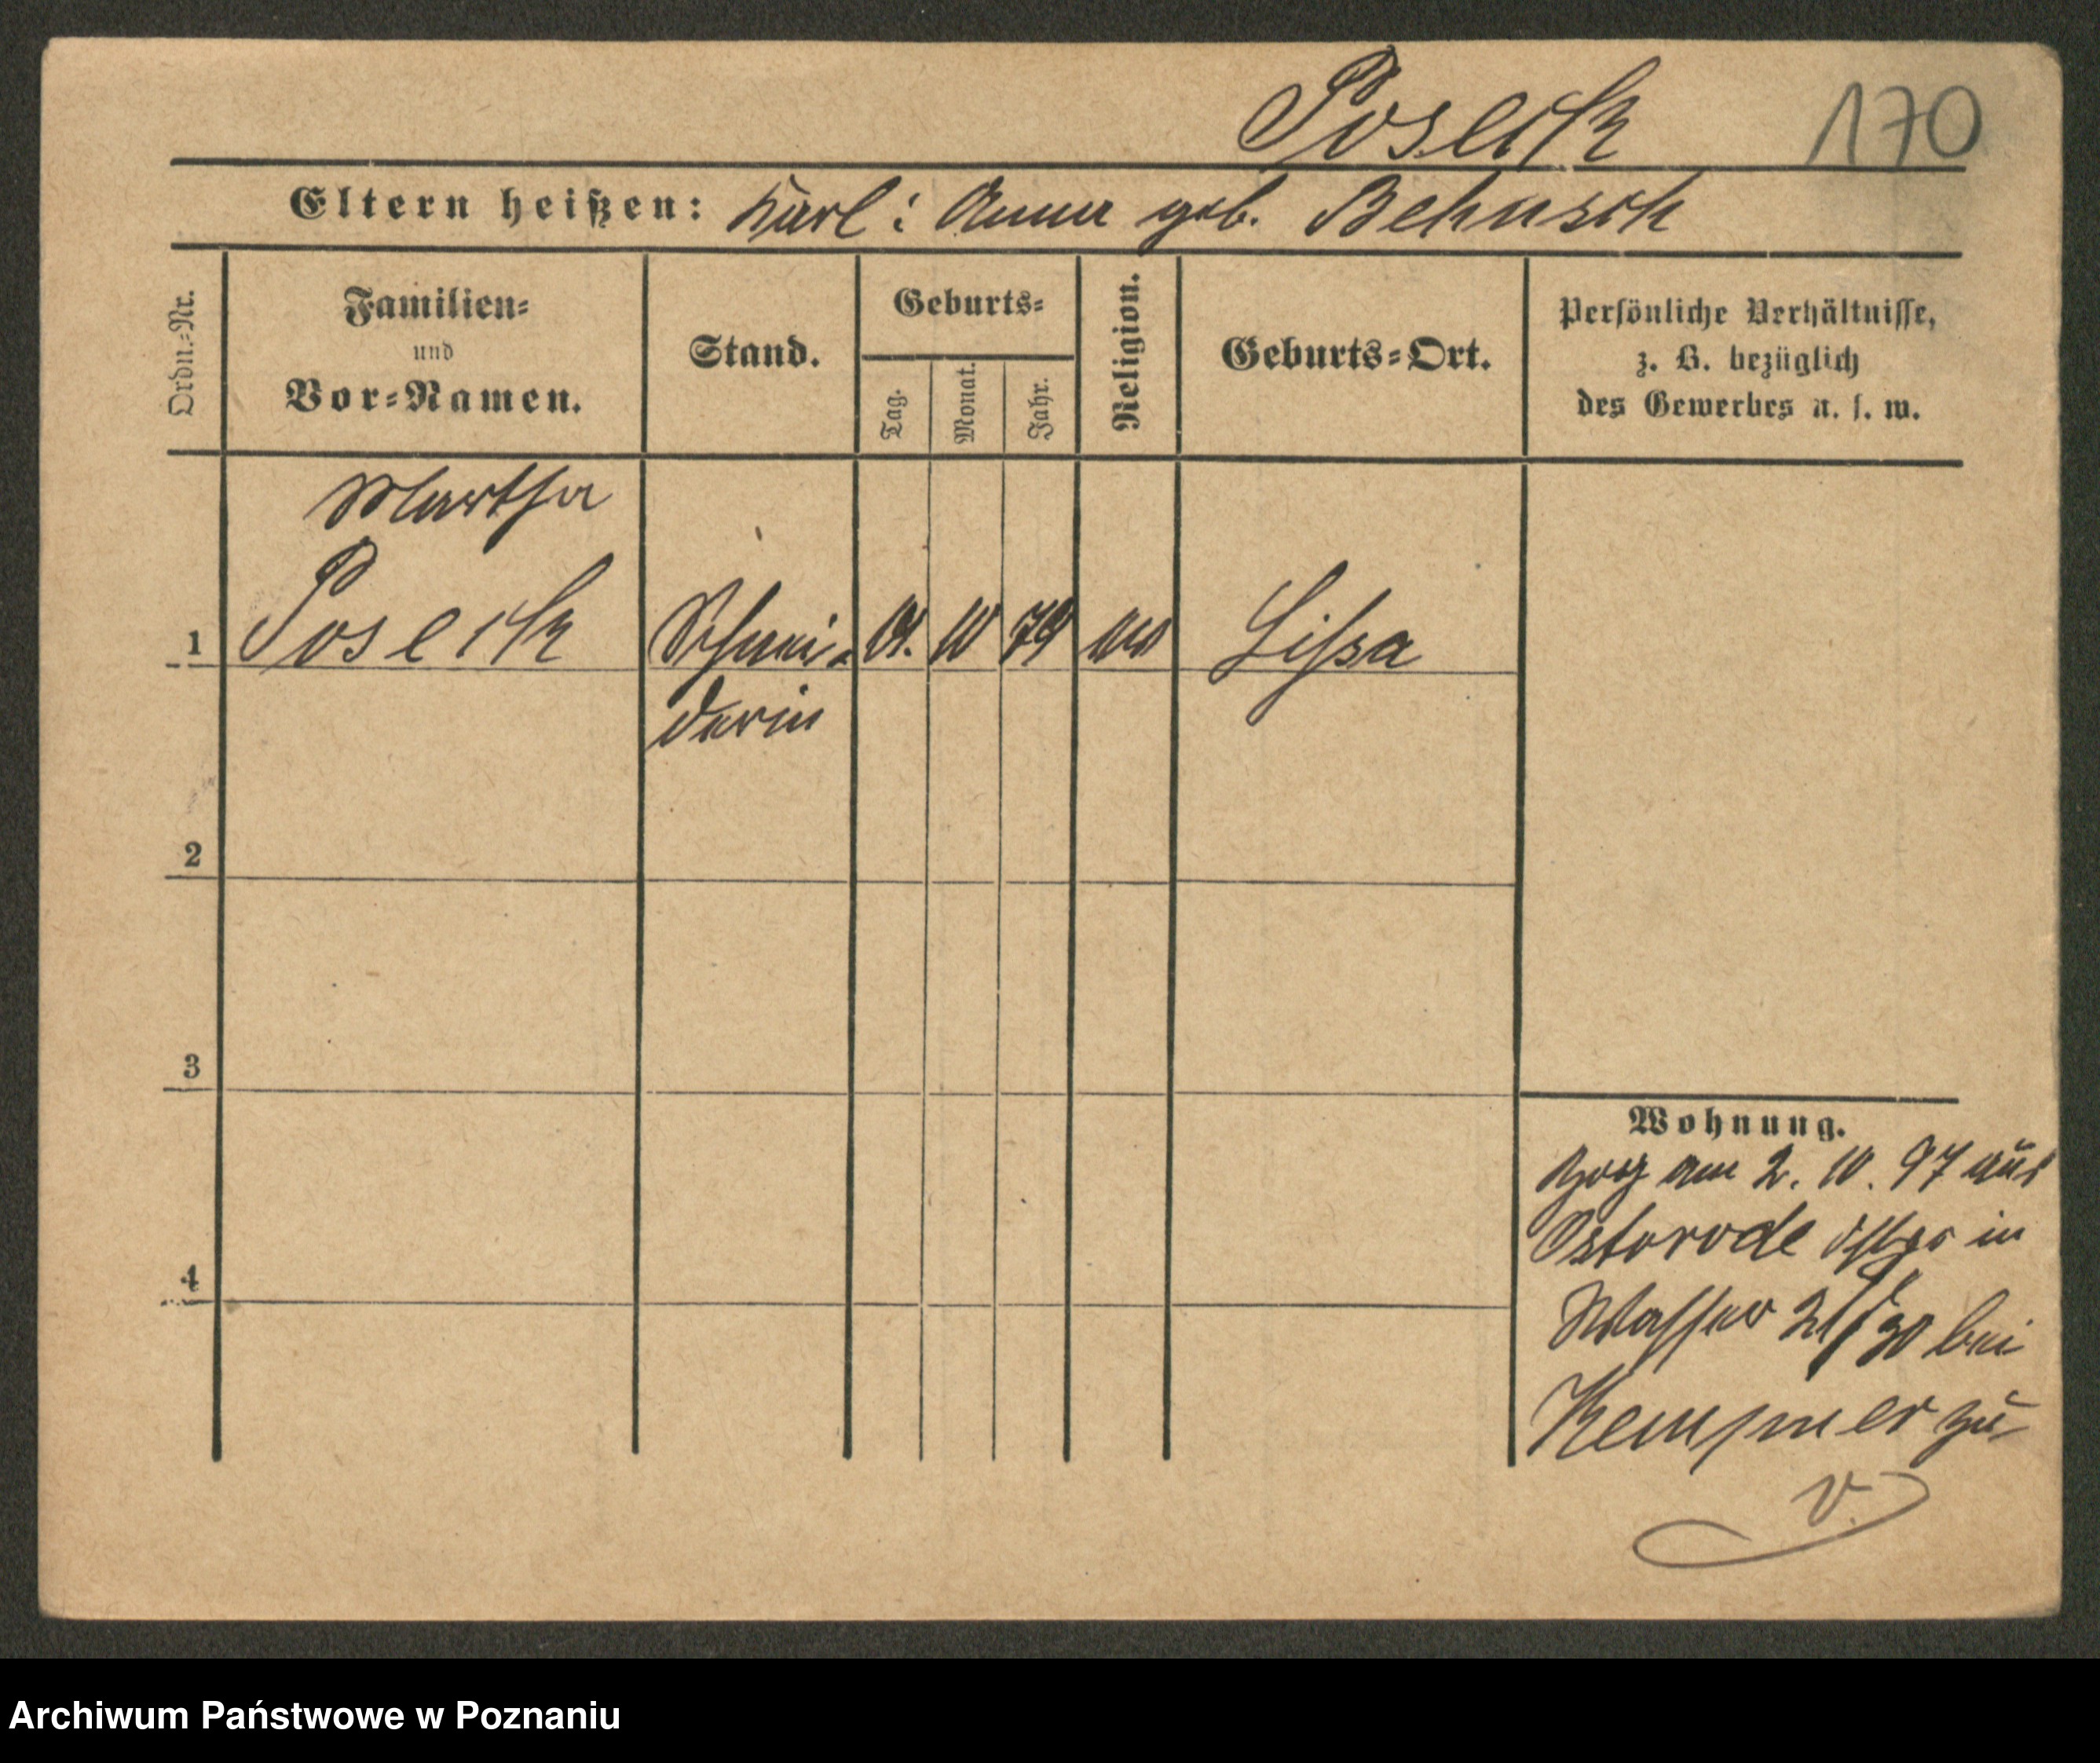 Poseck 170
Eltern heißen: Karl : Anna geb. Behnsch
Ordn.-Nr.
Familien-
und
Vor-Namen.
Stand.
Geburts-
Tag.
Monat.
Jahr.
Religion.
Geburts-Ort.
Persönliche Verhältnisse,
z. B. bezüglich
des Gewerbes u. s. w.
Martha
1 Poseck Schnei- 10 79 Lissa
derin
2
3
4
Wohnung.
Zog am 2. 10. 97 aus
Osterode in
Wasser bei
Kempner zu
v.
Archiwum Państwowe w Poznaniu